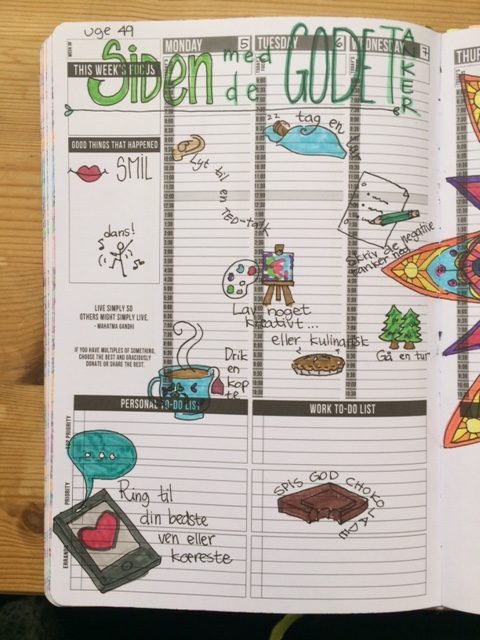 uge 49
MONDAY 5
TUESDAY 6
WEDNESDAY 7
THUR
Siden med de GODE TANKER
THIS WEEK'S FOCUS
GOOD THINGS THAT HAPPENED
SMIL
Lyt til en TED-talk
zz
tag en lur
Skriv de negative
tanker ned
dans!
Lav noget
kreativt...
eller kulinarisk
Gå en tur
LIVE SIMPLY SO
OTHERS MIGHT SIMPLY LIVE.
- MAHATMA GANDHI
IF YOU HAVE MULTIPLES OF SOMETHING,
CHOOSE THE BEST AND GRACIOUSLY
DONATE OR SHARE THE REST.
Drik
en
kop
te
PERSONAL TO-DO LIST
WORK TO-DO LIST
PRIORITY
ERRANDS
Ring til
din bedste
ven eller
kæreste
SPIS GOD CHOKOLADE